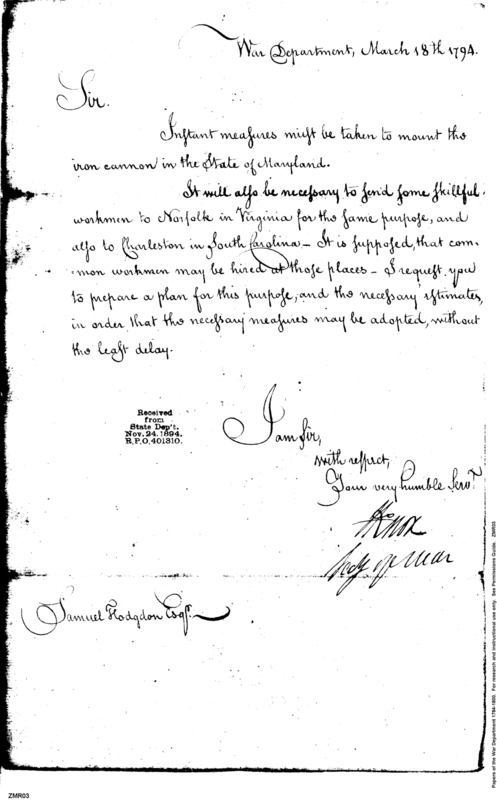 War Department, March 18th 1794.
Sir.
Inſtant meaſures muſt be taken to mount the
iron cannon in the State of Maryland.
It will alſo be neceſſary to ſend ſome ſkillful
workmen to Norfolk in Virginia for the ſame purpoſe, and
alſo to Charleſton in South Carolina – It is ſuppoſed, that com-
-mon workmen may be hired at thoſe places – I requeſt you
to prepare a plan for this purpoſe, and the neceſſary eſtimates,
in order that the neceſſary meaſures may be adopted, without
the leaſt delay.
Received
from
State Dep't.
Nov. 24. 1894.
R.P.O. 401310.
I am ſir,
with reſpect,
Your very humble Servt
HKnox
Secy of War
Samuel Hodgdon Esqr.
Papers of the War Department 1784-1800. For research and instructional use only. See Permissions Guide. ZMR03
ZMR03